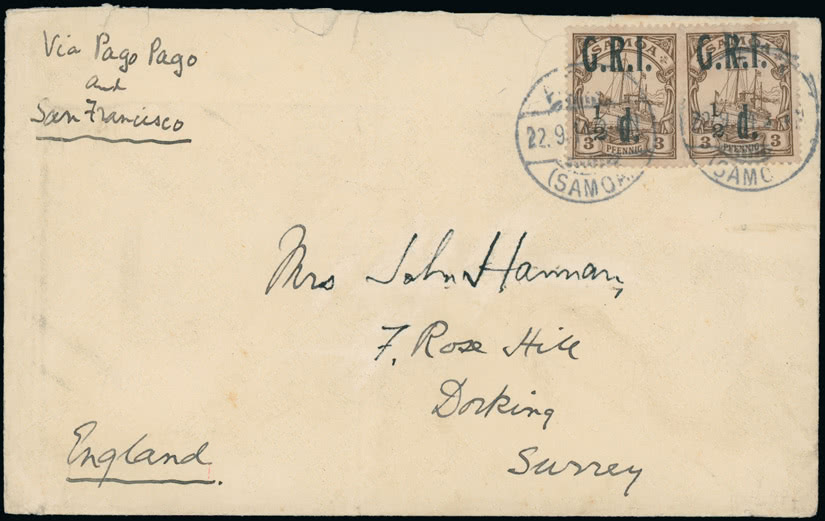 Via Pago Pago
and
San Francisco
SAMOA SAMOA
G.R.I. G.R.I.
1/2 d. 1/2 d.
3 PFENNIG 3 3 PFENNIG 3
22.9
(SAMOA) (SAMO
Mrs John Hannan,
7, Rose Hill
Dorking
Surrey
England.